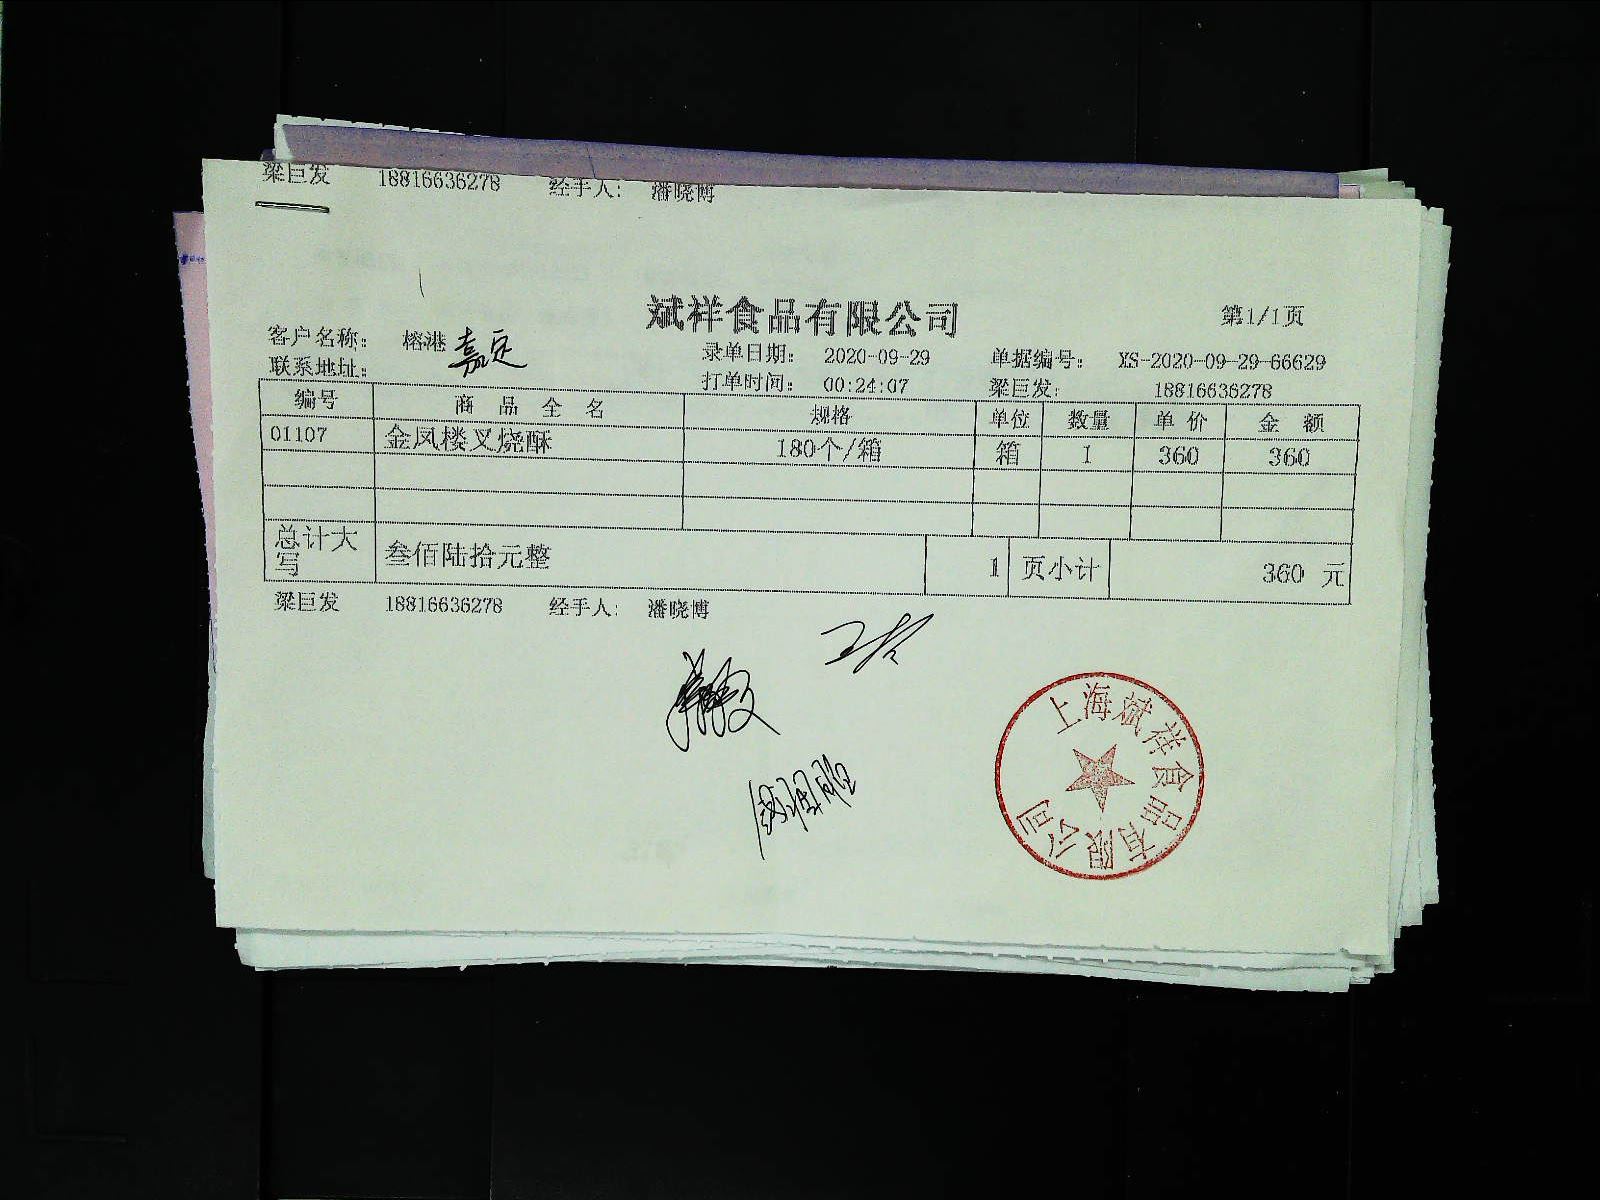 梁巨发 18816636278 经手人: 潘晓博
斌祥食品有限公司 第1/1页
客户名称: 榕港 嘉定 录单日期: 2020-09-29 单据编号: XS-2020-09-29-66629
联系地址: 打单时间: 00:24:07 梁巨发: 18816636278
编号 商品全名 规格 单位 数量 单价 金额
01107 金凤楼叉烧酥 180个/箱 箱 1 360 360
总计大写 叁佰陆拾元整 1 页小计 360 元
梁巨发 18816636278 经手人: 潘晓博
上海斌祥食品有限公司